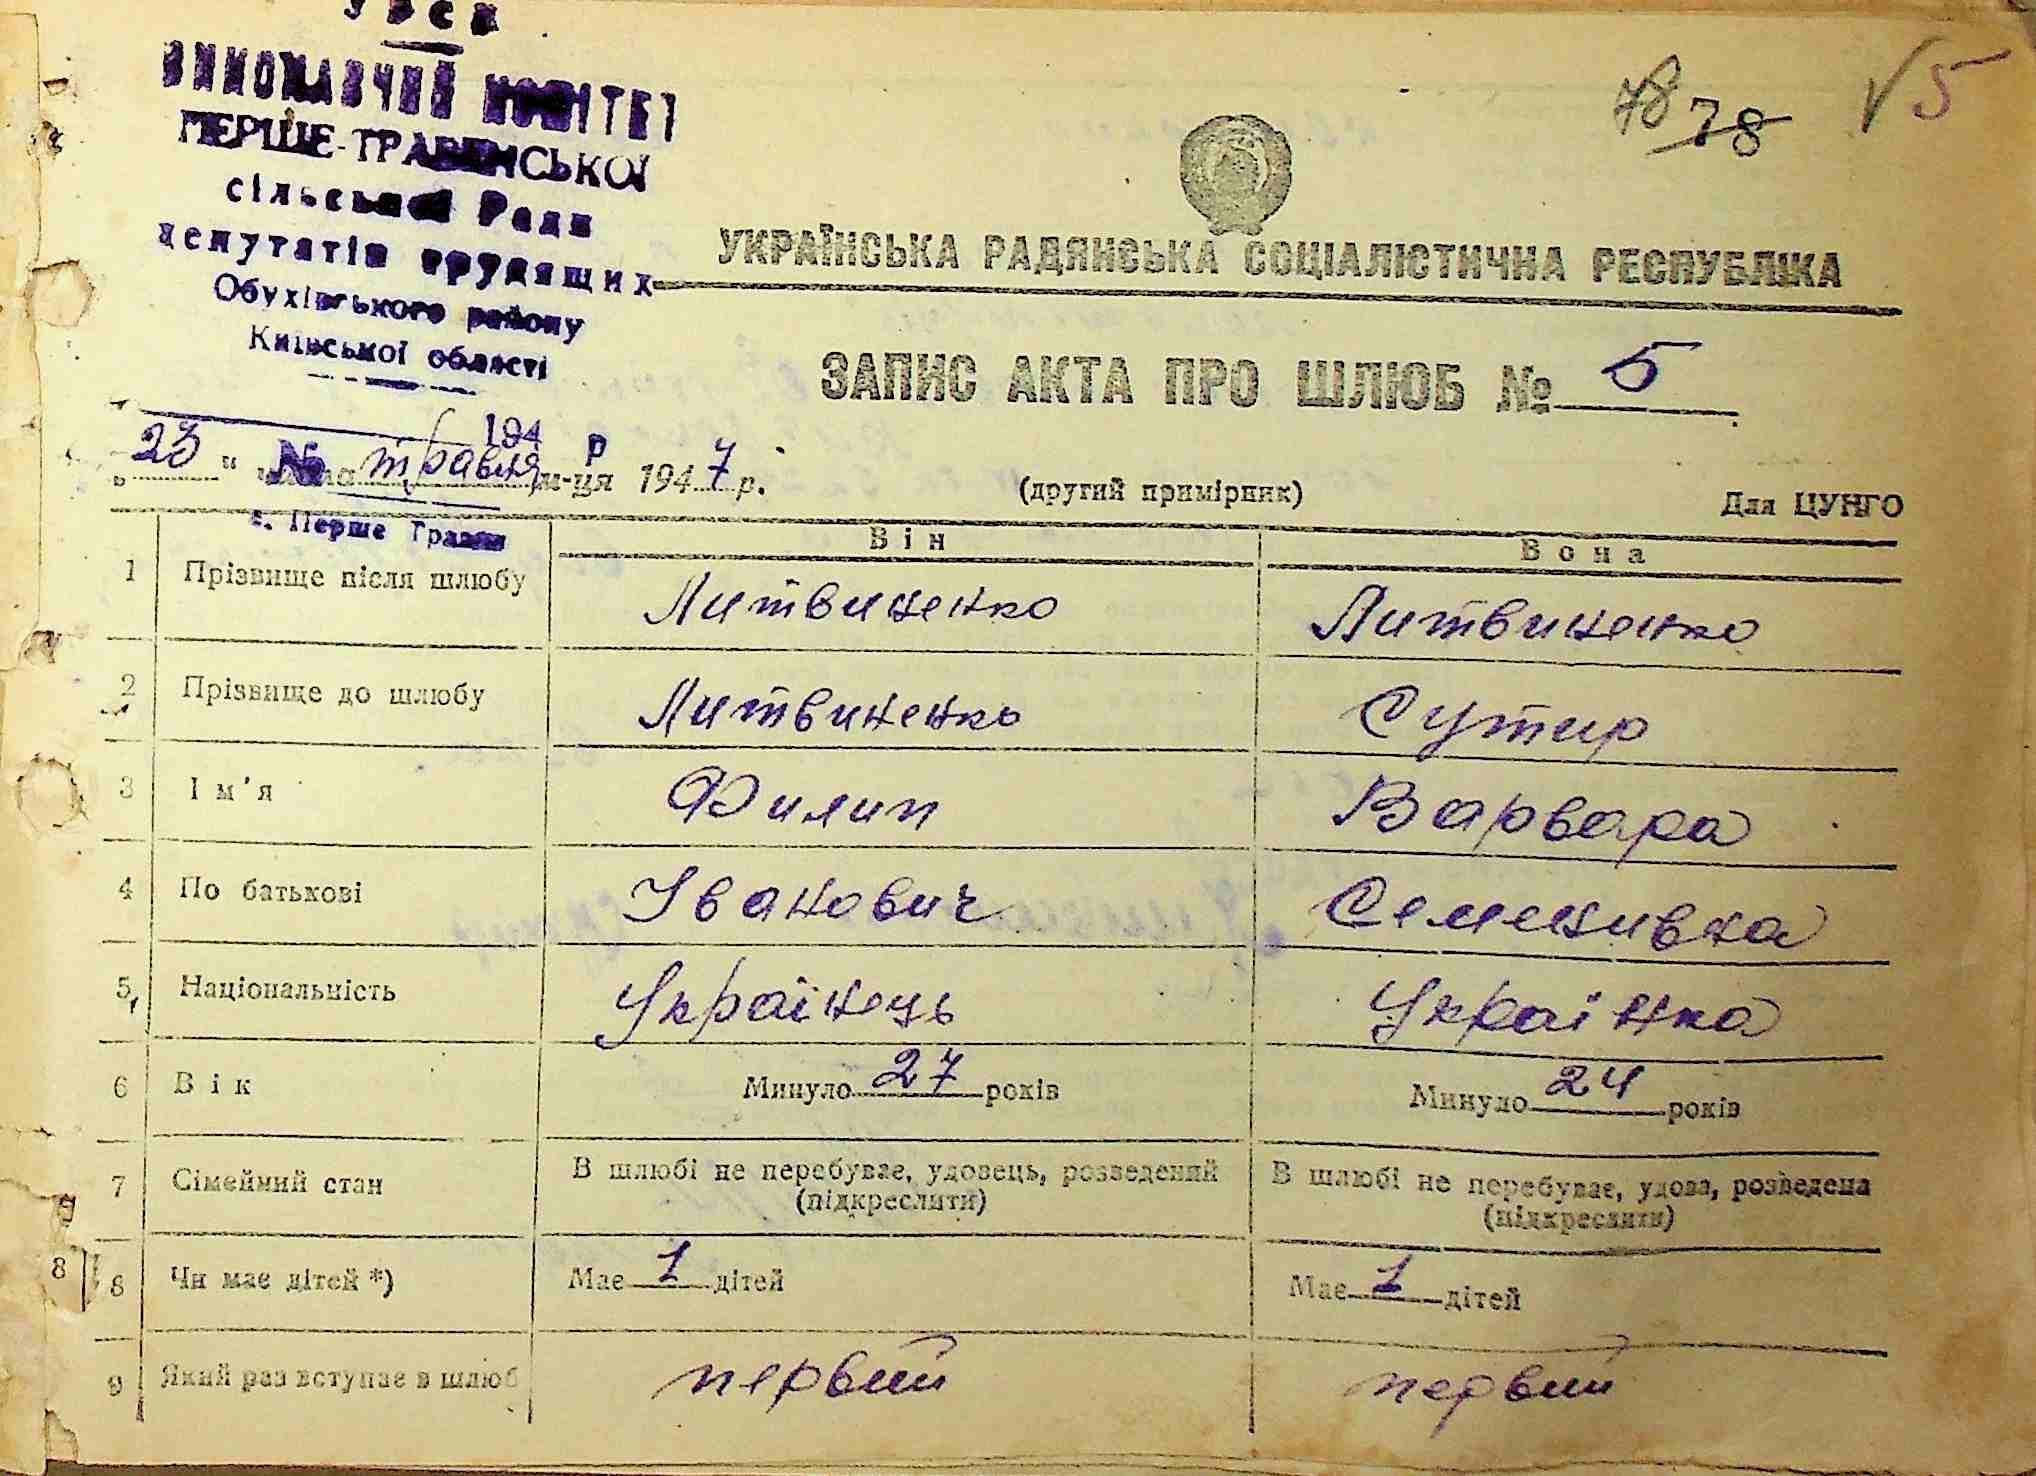 УРСР
ВИКОНАВЧИЙ КОМІТЕТ
ПЕРШЕ-ТРАВЕНСЬКОЇ
сільської Ради
депутатів трудящих
Обухівського району
Київської області
78 78 √ 5
УКРАЇНСЬКА РАДЯНСЬКА СОЦІАЛІСТИЧНА РЕСПУБЛІКА
ЗАПИС АКТА ПРО ШЛЮБ № 5
194 р
„23“ числа травня м-ця 1947 р.
№
(другий примірник)
Для ЦУНГО
с. Перше Травня
Він
Вона
1 Прізвище після шлюбу Литвиненко Литвиненко
2 Прізвище до шлюбу Литвиненко Сутир
3 Ім'я Филип Варвара
4 По батькові Іванович Семенивна
5 Національність Українець Українка
6 Вік Минуло 27 років Минуло 24 років
7 Сімейний стан В шлюбі не перебуває, удовець, розведений (підкреслити) В шлюбі не перебуває, удова, розведена (підкреслити)
8
8 Чи має дітей *) Має 1 дітей Має 1 дітей
9 Який раз вступає в шлюб первий первий